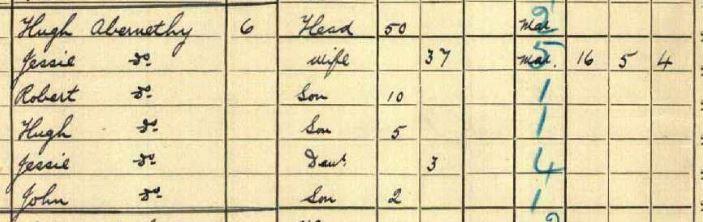 Hugh Abernethy 6 Head 50 Mar 2
Jessie do. Wife 37 Mar. 5 16 5 4
Robert do. Son 10 1
Hugh do. Son 5 1
Jessie do. Daur. 3 4
John do. Son 2 1